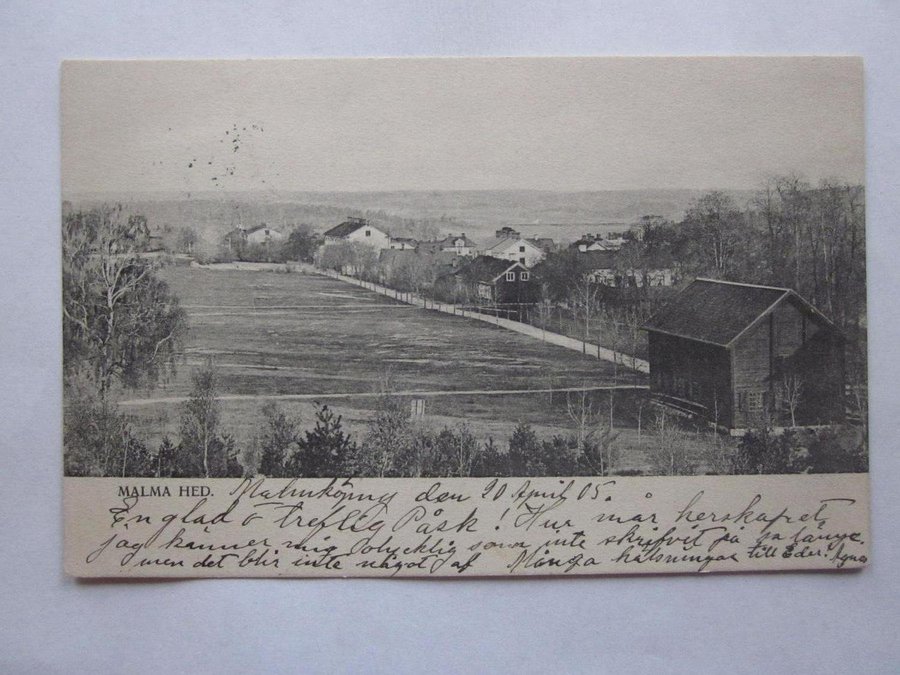 MALMA HED. Malmköping den 20 April 05.
En glad o treflig Påsk! Hur mår herskapet
jag känner mig olycklig som inte skrifvit på så länge.
men det blir inte något af Många hälsningar till Eder. Agnes